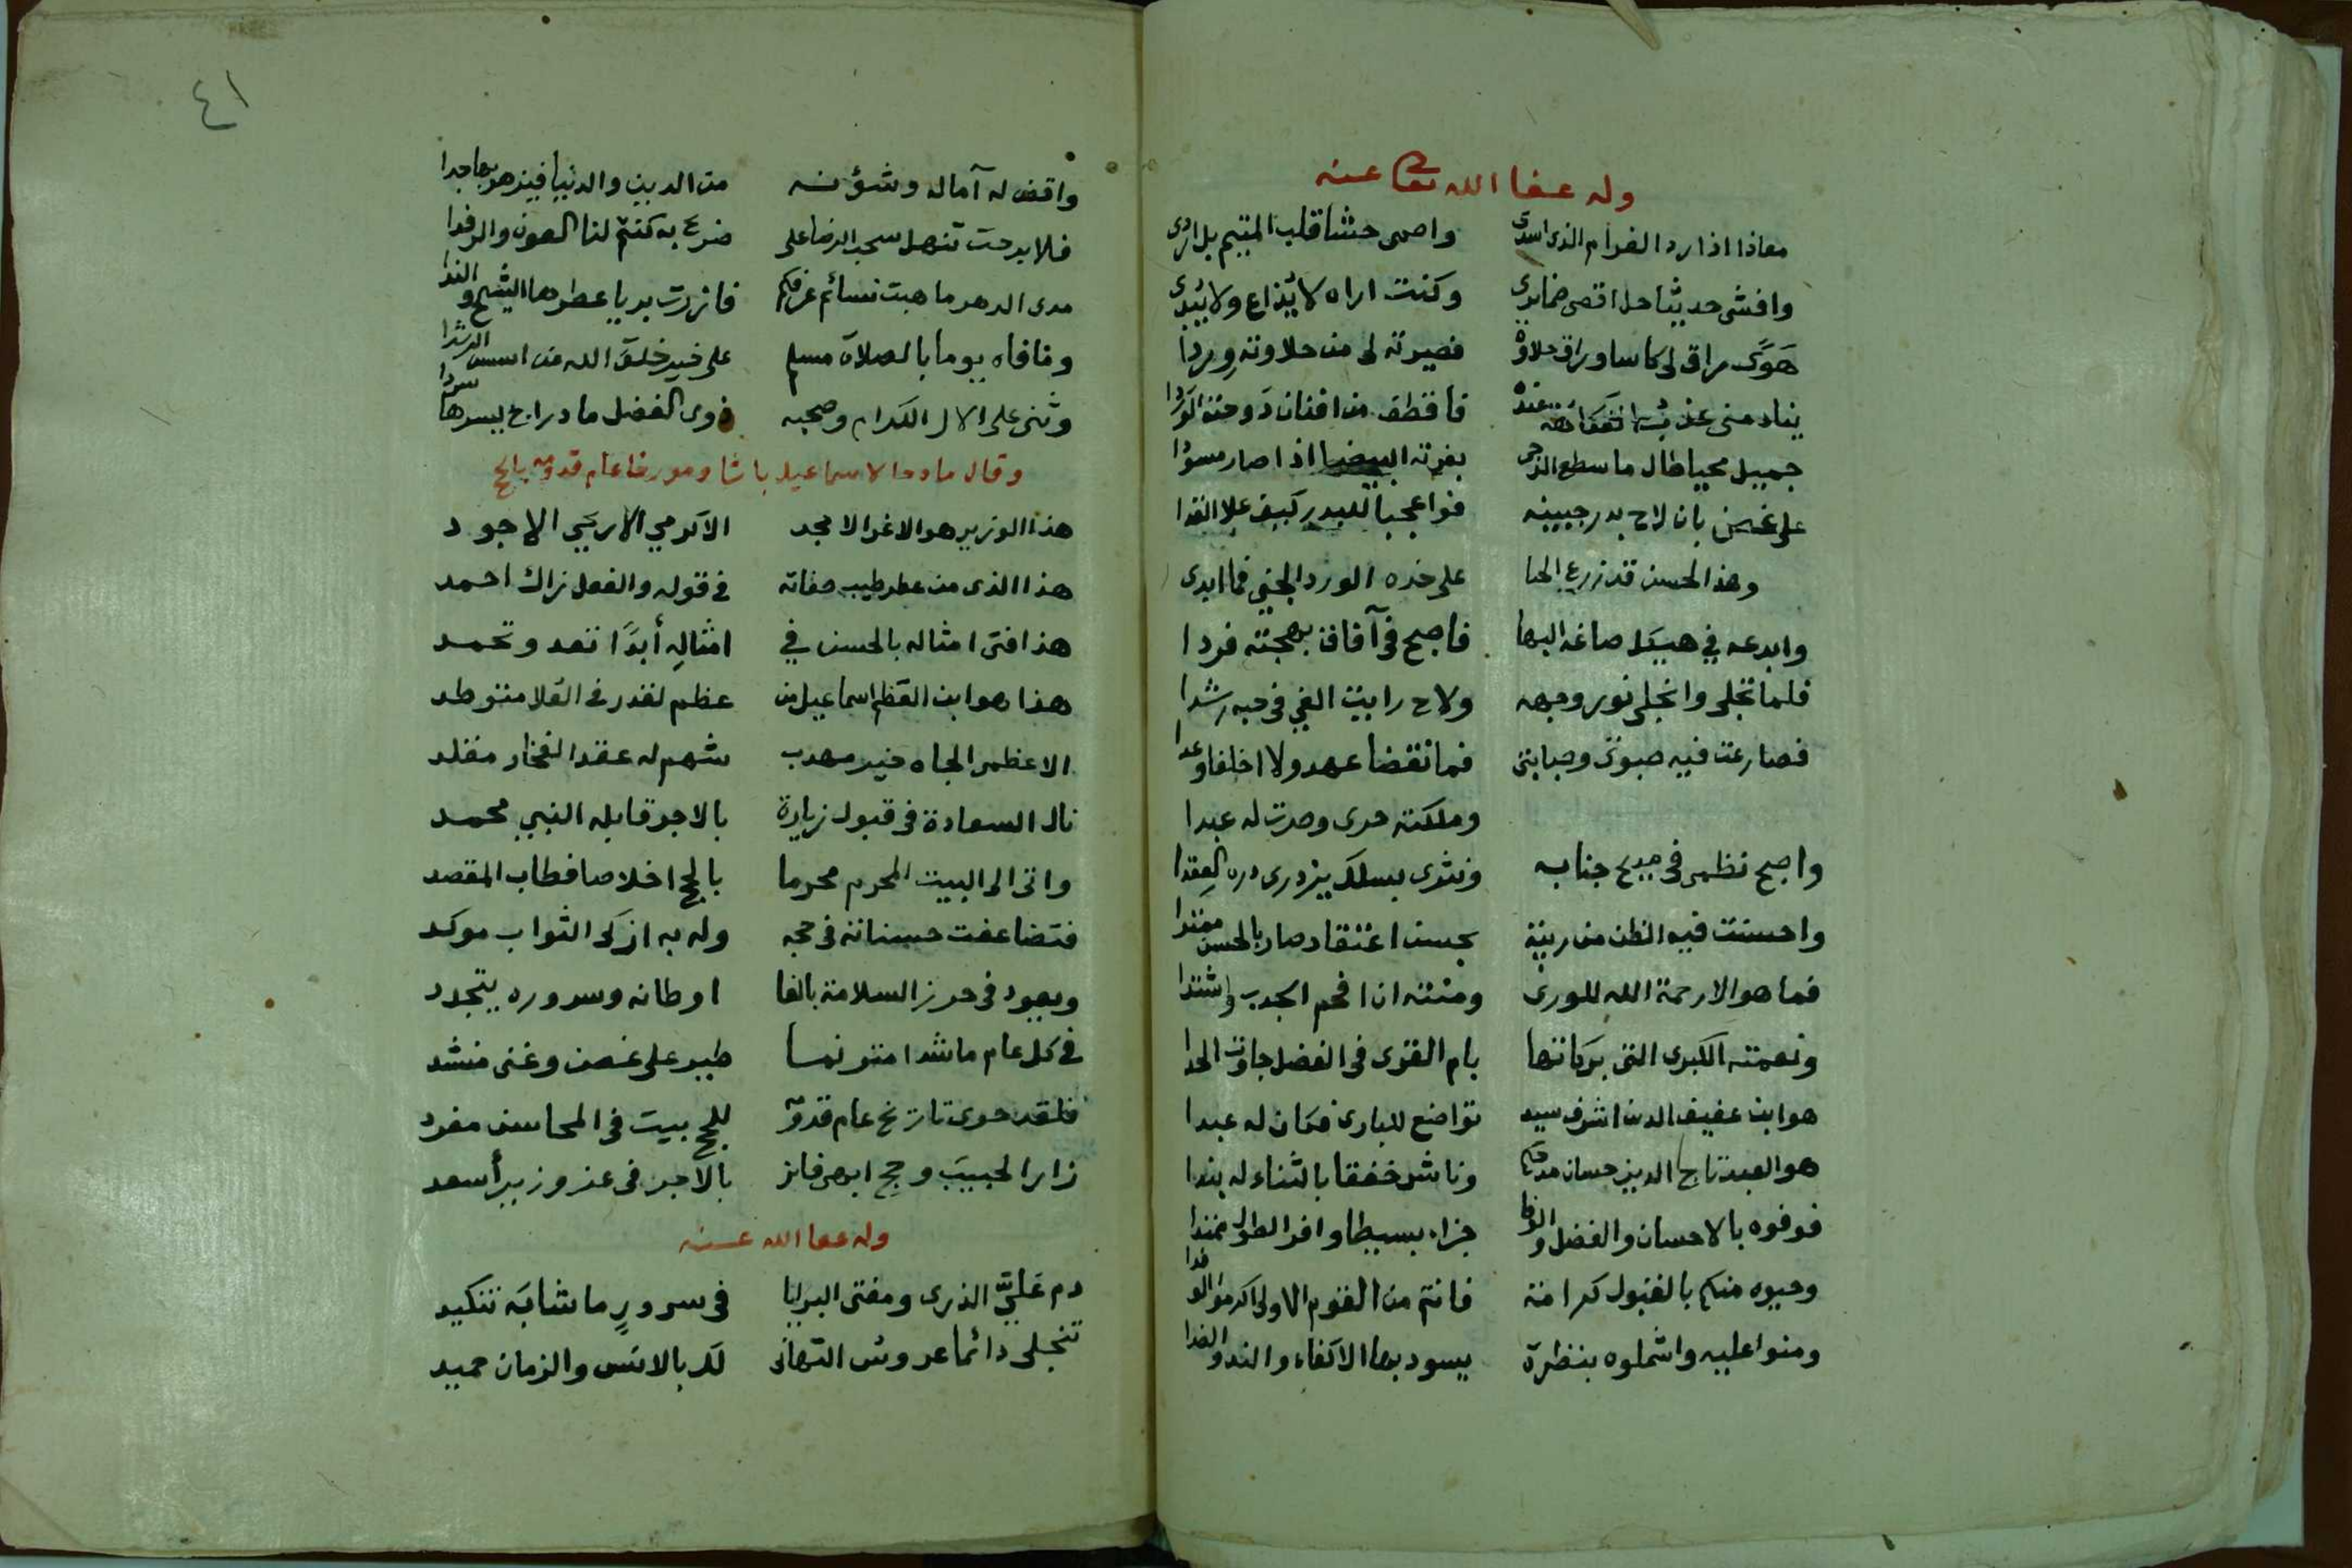 وله عفا الله تعالى عنه
معاذا اذا رد الغرام الذي اسدى واصمى حشا قلب المتيم بل اردى
وافشى حديثا حل اقصى ضمايرى وكنت اراه لا يذاع ولا يبدى
هوى راق لى كاسا وراق حلاوة فصيرته لى من حلاوته وردا
ينادمنى عند فاقطف من افنان دوحته الوردا
جميل محيا طال ما سطع الدجى بغرته البيضا اذا صار مسودا
على غصن بان لاح بدر جبينه فوا عجبا للبدر كيف علا القدا
وهذا الحسن قد زرع الحيا على خده الورد الجني فما ابدى
وابدعه في هيكل صاغه البها فاصبح فى آفاق بهجته فردا
فلما تجلى وانجلى نور وجهه ولاح رايت الغي فى حبه رشدا
فصارعت فيه صبوتى وصبابتى فما نقضا عهد ولا اخلفا وعدا
وملكته حرى وصرت له عبدا
واصبح نظمى فى مديح جنابه ونثرى بسلك يزدرى دره العقدا
واحسنت فيه الظن من ريبة بحسن اعتقاد صار بالحسن معتدا
فما هو الا رحمة الله للورى ومنته ان اقحم الجدب واشتدا
ونعمته الكبرى التى بركاتها بام القرى فى الفضل جاوزت الحدا
هو ابن عفيف الدين اشرف سيد تواضع للبارى فكان له عبدا
هو العبد تاج الدين حسان مدحكم وناشر خفقا بالثناء له بندا
فوفوه بالاحسان والفضل والوفا جزاء بسيطا وافر الطول ممتدا
وحيوه منكم بالقبول كرامة فانتم من القوم الاولى اكرموا الوفدا
ومنوا عليه واشملوه بنظرة يسود بها الاكفاء والند والضدا
٤١
واقض له آماله وشؤنه من الدين والدنيا فيزهو بها جدا
فلا برحت تنهل سحب الرضا على ضريح به كنتم لنا العون والرفدا
مدى الدهر ما هبت نسائم عرفكم فازرت بريا عطرها الشيح والندا
وفافاه يوما بالصلاة مسلم على خير خلق الله من اسس الرشدا
وثنى على الال الكرام وصحبه ذوى الفضل ما دراج يسردها سردا
وقال مادحا لاسماعيل باشا ومورخا عام قدومه بالحج
هذا الوزير هو الاغر الامجد الاكرمي الاريحي الاجود
هذا الذى من عطر طيب صفاته فى قوله والفعل زاك احمد
هذا فتى امثاله بالحسن في امثاله أبدًا تعد وتحمد
هذا هو ابن العظم اسماعيل من عظم لقدر فى العلا متوطد
الاعظمى الجاه خير مهذب شهم له عقد الفخار مقلد
نال السعادة فى قبول زيارة بالاجر قابله النبي محمد
واتى الى البيت المحرم محرما بالحج اخلاصا فطاب المقصد
فتضاعفت حسناته فى حجه وله به ازكى الثواب موكد
ويعود فى حرز السلامة بالغا اوطانه وسروره يتجدد
فى كل عام ما شدا مترنما طير على غصن وغنى منشد
فلقد حوى تاريخ عام قدومه للحج بيت فى المحاسن مفرد
زار الحبيب وحج ابهى فائز بالاجر فى عز وزير أسعد
وله عفا الله عنه
دم عليَّ الذرى ومفتى البرايا فى سرورٍ ما شابه تنكيد
تنجلى دائما عروس التهانى لك بالانس والزمان حميد